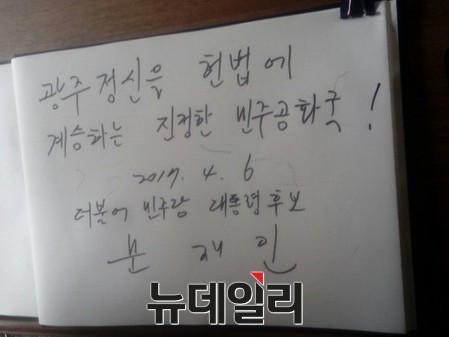 광주정신을 헌법에
계승하는 진정한 민주공화국!
2017. 4. 6
더불어 민주당 대통령후보
문 재 인
뉴데일리